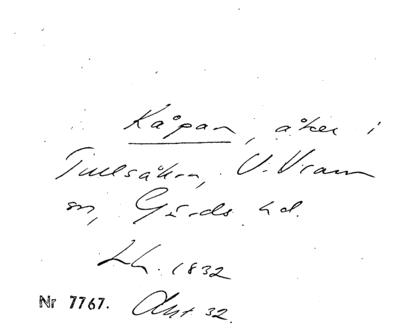 Kågan, åker i
Tullsåkra, V. Vram
sn, Gärds hd.
Lh. 1832
Nr 7767. Akt 32.